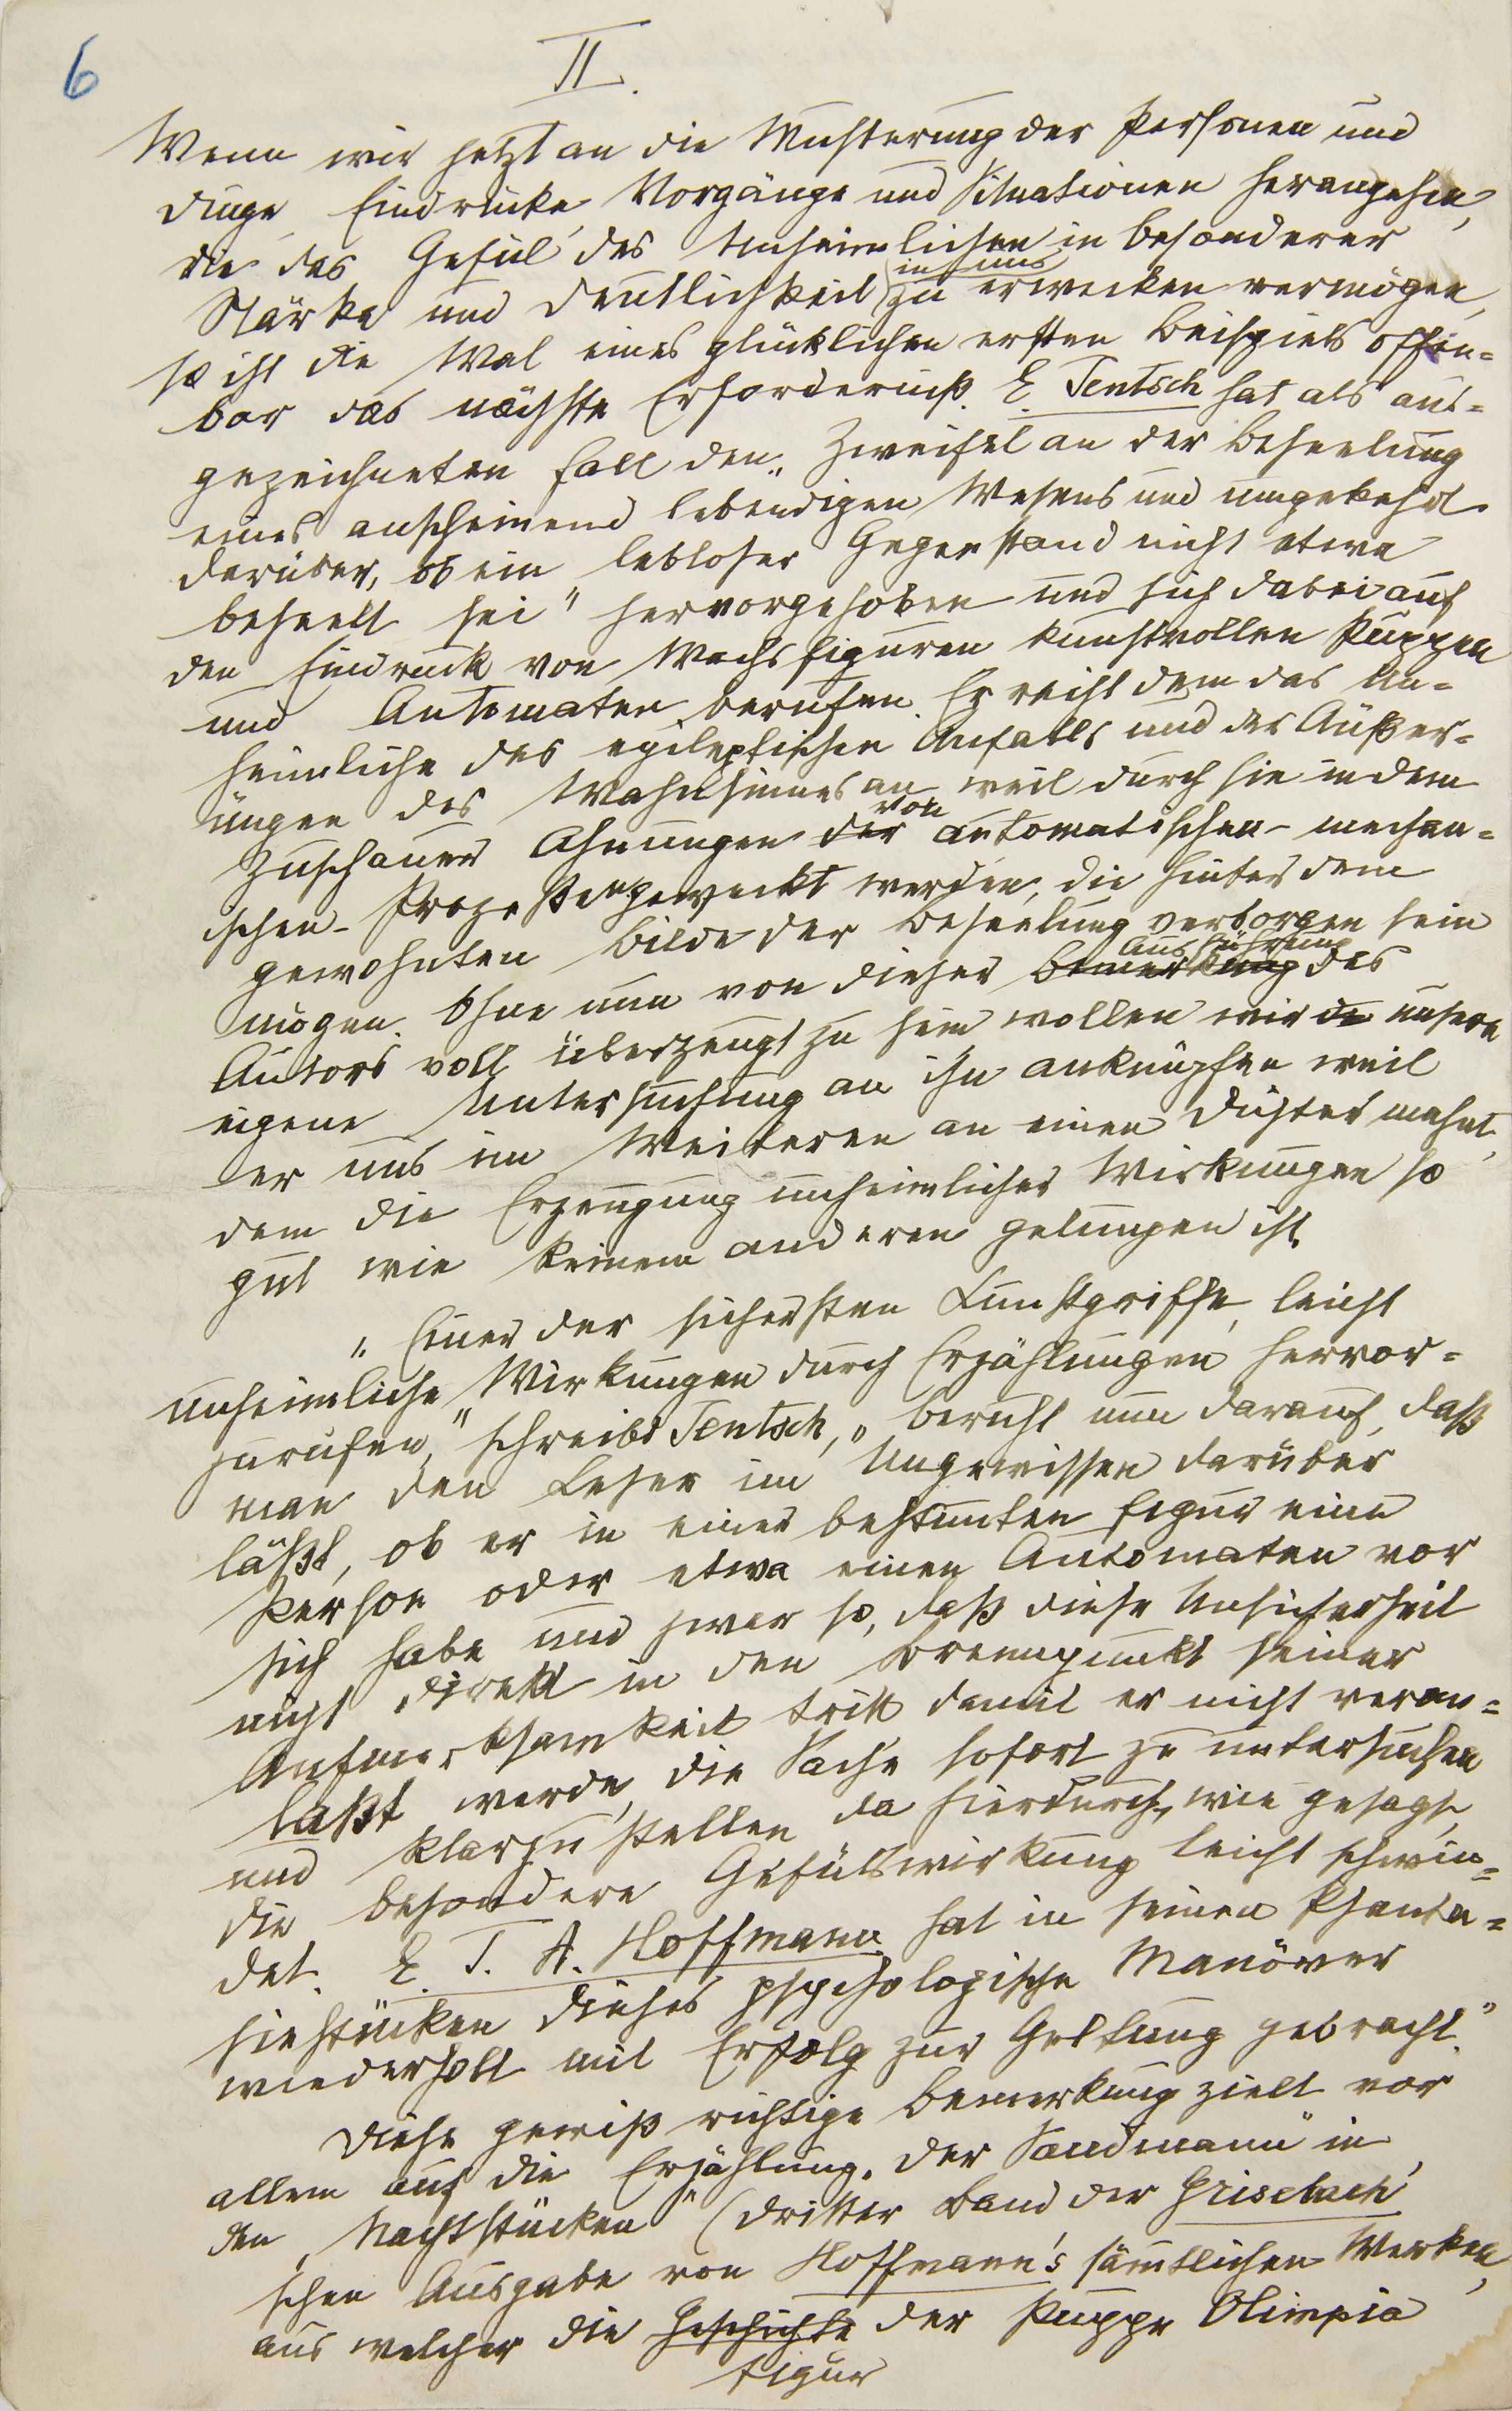 6
II.
Wenn wir jetzt an die Musterung der Personen und
Dinge, Eindrücke, Vorgänge und Situationen herangehen,
die das Gefül des Unheimlichen in besonderer
Stärke und Deutlichkeit in uns zu erwecken vermögen,
so ist die Wal eines glücklichen ersten Beispiels offen=
bar das nächste Erforderniß. E. Jentsch hat als aus=
gezeichneten Fall den „Zweifel an der Beseelung
eines anscheinend lebendigen Wesens und umgekehrt
darüber, ob ein lebloser Gegenstand nicht etwa
beseelt sei" hervorgehoben und sich dabei auf
den Eindruck von Wachsfiguren kunstvollen Puppen
und Automaten berufen. Er reiht dem das Un=
heimliche des epileptischen Anfalls und der Äußer=
ungen des Wahnsinnes an, weil durch sie in dem
Zuschauer Ahnungen der von automatischen – mechan=
ischen – Prozessen geweckt werden, die hinter dem
gewohnten Bilde der Beseelung verborgen sein
mögen. Ohne nun von dieser Bemerkung Ausführung des
Autors voll überzeugt zu sein, wollen wir die unsere
eigene Untersuchung an ihn anknüpfen weil
er uns im Weiteren an einen Dichter mahnt,
dem die Erzeugung unheimlicher Wirkungen so
gut wie keinem anderen gelungen ist.
„Einer der sichersten Kunstgriffe, leicht
unheimliche Wirkungen durch Erzählungen hervor=
zurufen," schreibt Jentsch, „beruht nun darauf, daß
man den Leser im Ungewissen darüber
läßt, ob er in einer bestimmten Figur eine
Person oder etwa einen Automaten vor
sich habe und zwar so, daß diese Unsicherheit
nicht direkt in den Brennpunkt seiner
Aufmerksamkeit tritt damit er nicht veran=
laßt werde, die Sache sofort zu untersuchen
und klarzustellen, da hierdurch, wie gesagt,
die besondere Gefülswirkung leicht schwin=
det. E. T. A. Hoffmann hat in seinen Phanta=
siestücken dieses psychologische Manöver
wiederholt mit Erfolg zur Geltung gebracht."
Diese gewiß richtige Bemerkung zielt vor
allem auf die Erzählung „Der Sandmann" in
den „Nachtstücken" (dritter Band der Grisebach'
schen Ausgabe von Hoffmann's sämtlichen Werken,
aus welcher die Geschichte der Puppe Olimpia
Figur